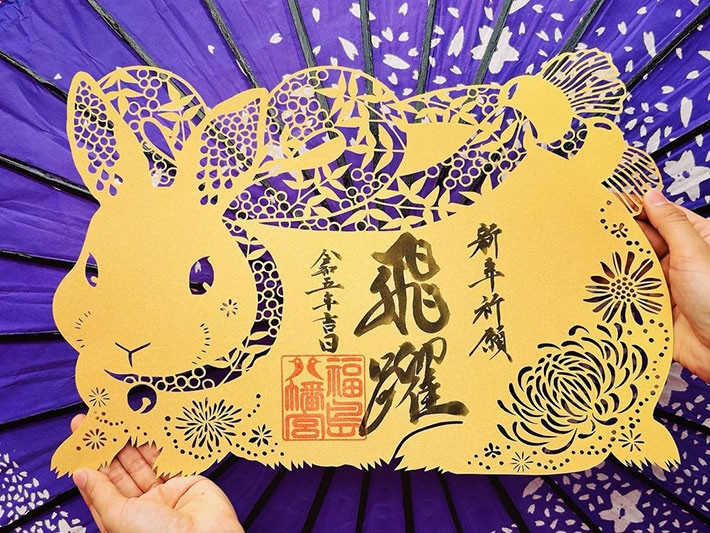 新年祈願
飛躍
令五年吉日
福島
八幡宮